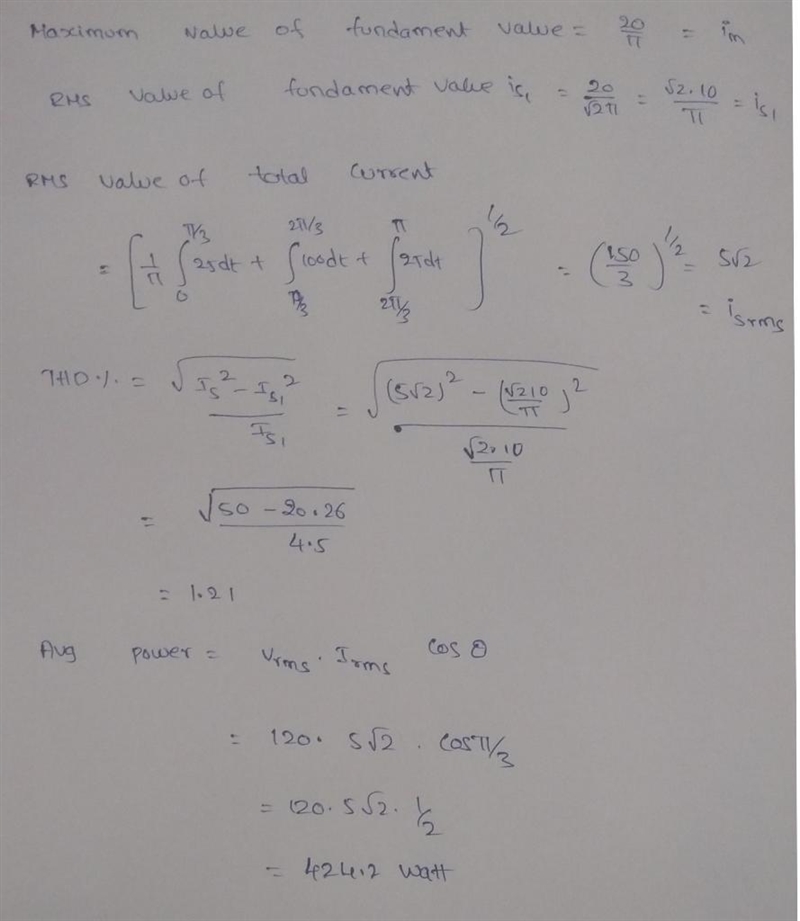 Maximum value of fundament value = 20/π = im
RMS value of fundament value is1 = 20/√2π = √2.10/π = is1
RMS value of total current
= [1/π ∫0^π/3 25dt + ∫π/3^2π/3 100dt + ∫2π/3^π 25dt]^1/2 = (150/3)^1/2 = 5√2
= isrms
THD% = √Is² - Is1² / Is1 = √(5√2)² - (√210/π)² / √2.10/π
= √50 - 20.26 / 4.5
= 1.21
Avg power = Vrms . Irms cos θ
= 120. 5√2 . cosπ/3
= 120.5√2. 1/2
= 424.2 watt